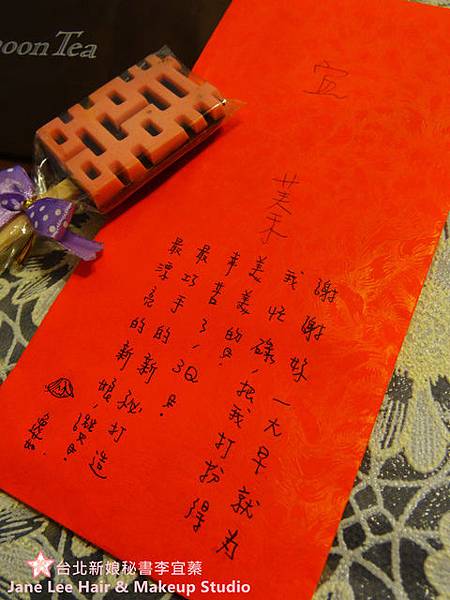 oon Tea
宜
蓁
謝謝妳一大早就為
我忙碌,把我打扮得
美美的!
辛苦了,3Q!
最巧手的新秘打造
最漂亮的新娘,讚!
台北新娘秘書李宜蓁
Jane Lee Hair & Makeup Studio